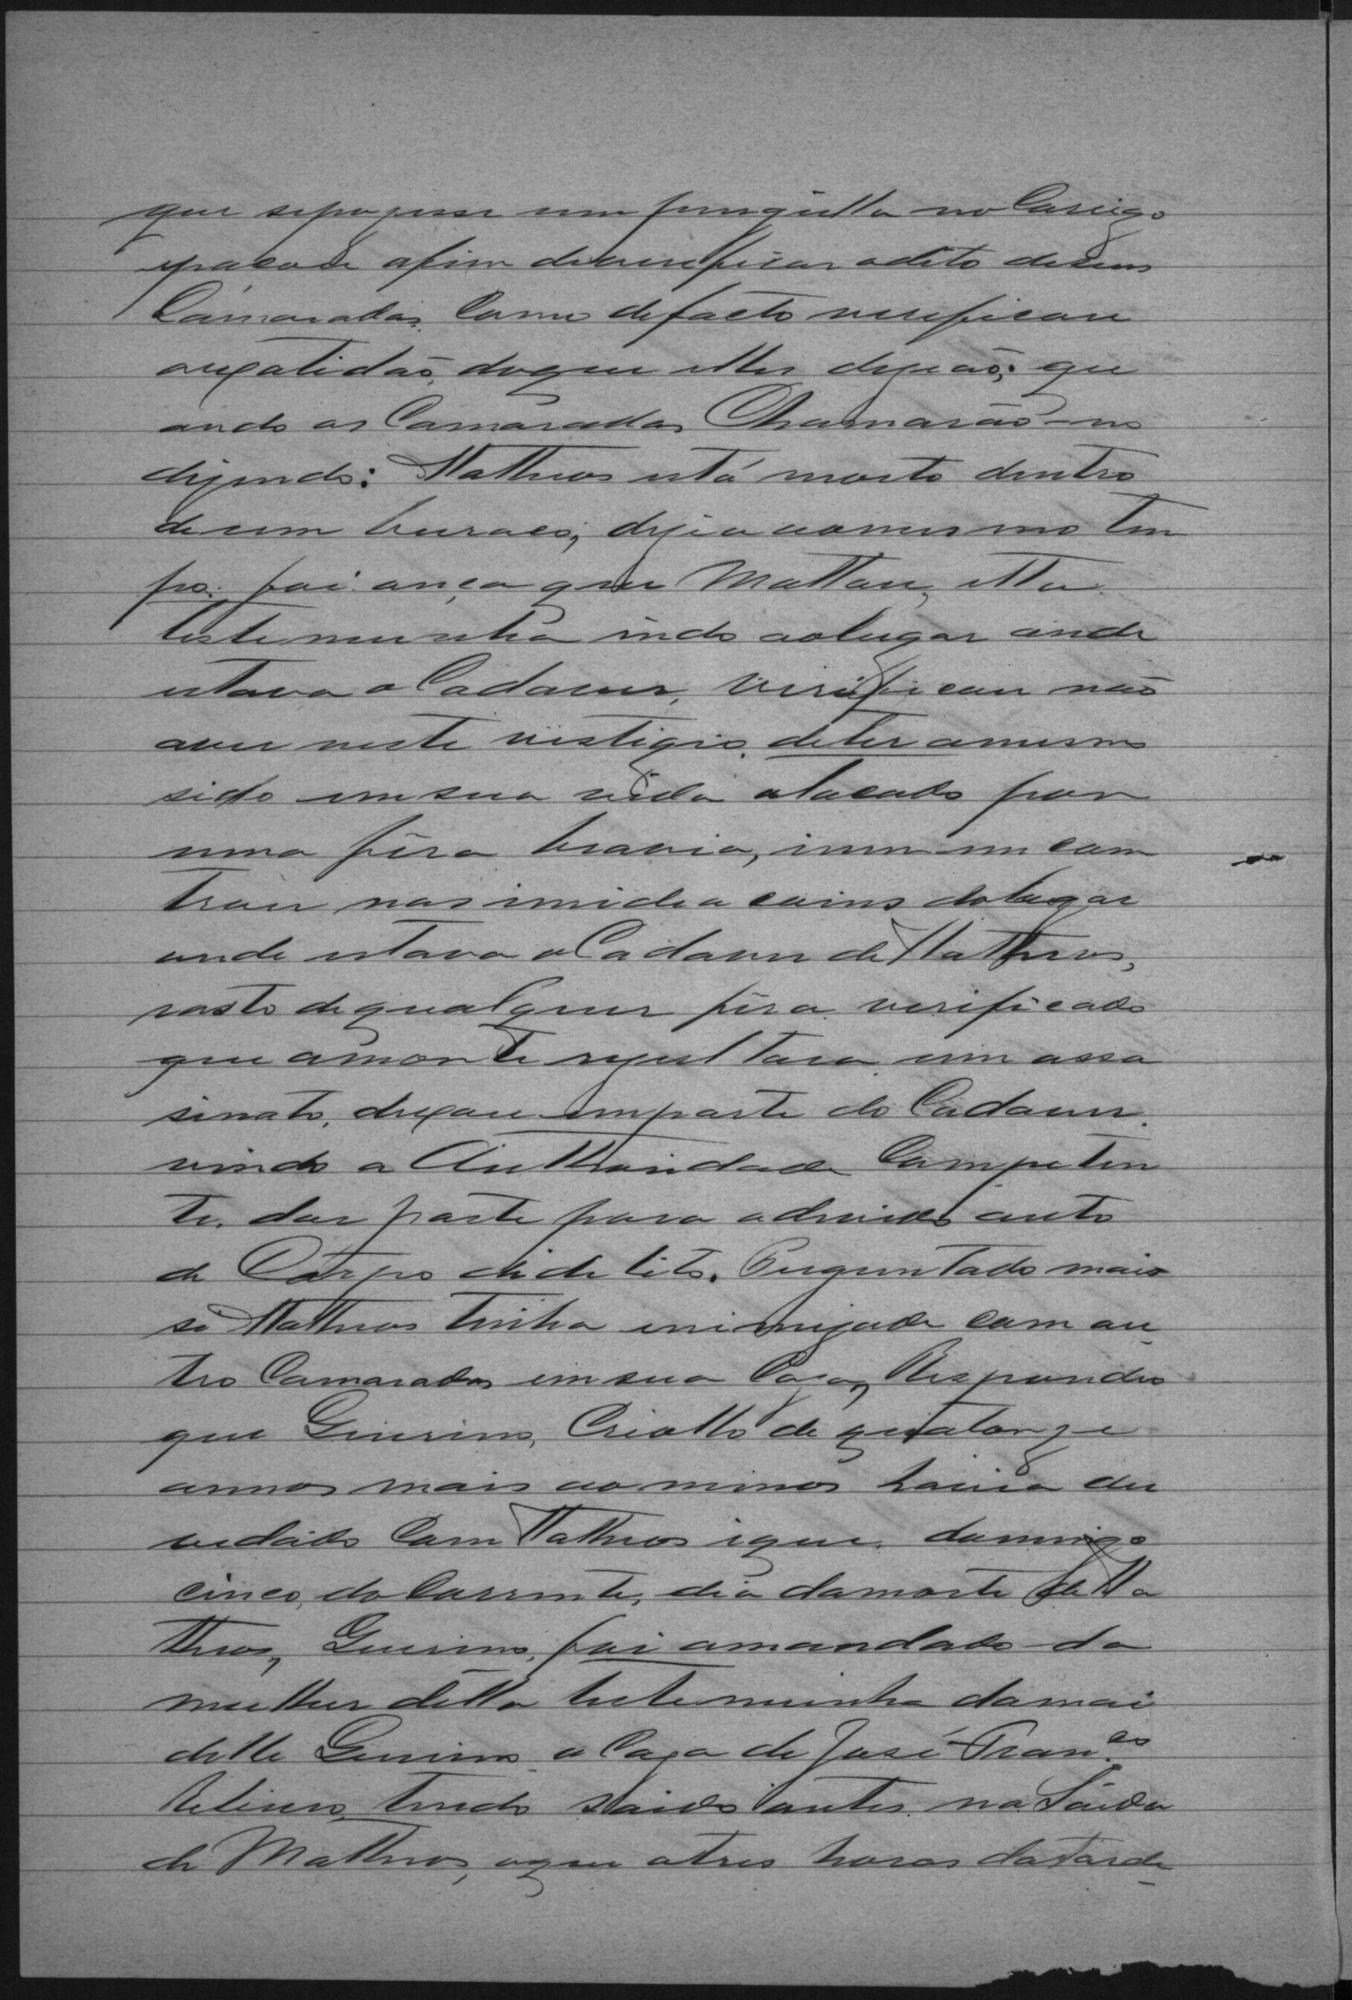 que
afim de verificar o dito de seus
Camaradas. Como de facto verificou
a exatidaõ, do que elles diziaõ; que
ando os Camaradas Chamaraõ-no
dizendo: Matheos está morto dentro
de um buraco, dizia ao mesmo tem
po: foi onça que Matou, elle
testemunha indo ao lugar onde
estava o Cadaver, verificou naõ
aver neste vestigio, de ter o mesmo
sido em sua vida atacado por
uma féra bravia, nem encon
trou nas imidiacoins do lugar
onde estava o Cadaver de Matheos,
rasto de qualquer féra. verificado
que a morte rezultara um assa
sinato, deixou em parte do Cadaver.
vindo a Authoridade Competen
te, dar parte para o devido auto
de Corpo de delito. Perguntado mais
si Matheos tinha inimizade com ou
tro Camaradas em sua Caza, Respondeo
que Guirino, Criollo de quatorze
annos mais ao menos havia du
vidado Com Matheos e que, domingo
cinco do Corrente, dia da morte de Ma
theos, Guirino, foi a mandado da
mulher della testemunha da mai
delle Guirino a Caza de José Fran.co
tendo saido antes na Saida
de Matheos, e que as tres horas da tarde